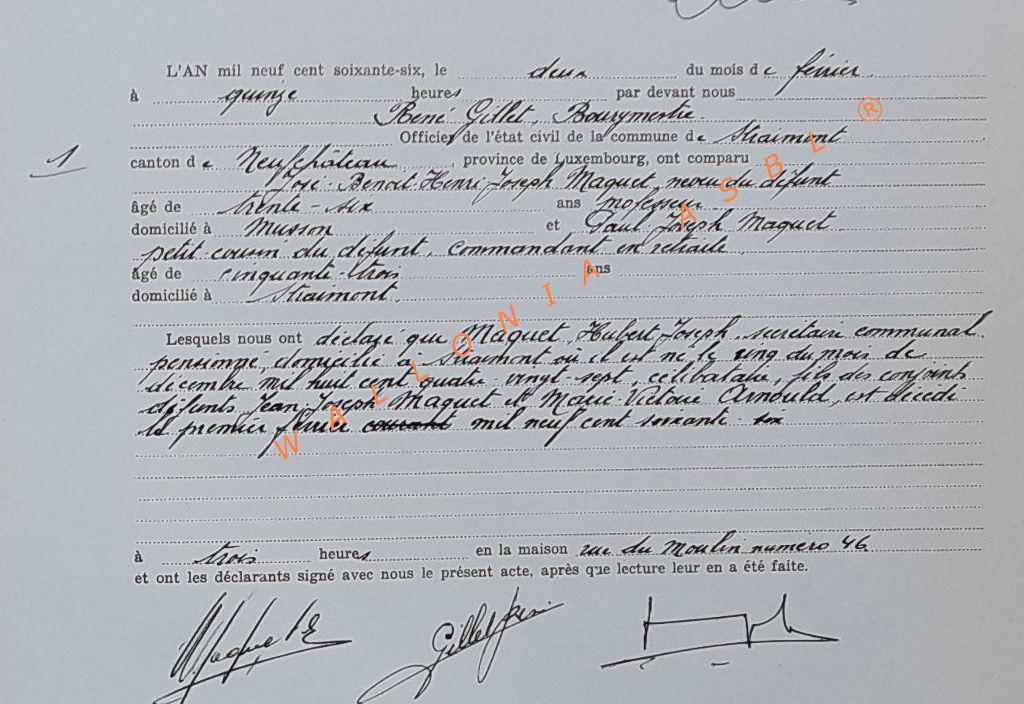 L'AN mil neuf cent soixante-six, le deux du mois de février
à quinze heures par devant nous
René Gillet, Bourgmestre
Officier de l'état civil de la commune de Straimont
1
canton de Neufchâteau, province de Luxembourg, ont comparu
José-Benoit-Henri-Joseph Maquet, neveu du défunt
âgé de trente-six ans professeur
domicilié à Musson et Paul Joseph Maquet
petit-cousin du défunt, commandant en retraite
âgé de cinquante-trois ans
domicilié à Straimont
Lesquels nous ont déclaré que Maquet, Hubert Joseph, secrétaire communal
pensionné, domicilié à Straimont où il est né, le cinq du mois de
décembre mil huit cent quatre-vingt sept, célibataire, fils des conjoints
défunts Jean-Joseph Maquet et Marie Victoire Arnould, est décédé
le premier février courant mil neuf cent soixante-six
à trois heures en la maison rue du Moulin numero 46
et ont les déclarants signé avec nous le présent acte, après que lecture leur en a été faite.
Gillet René
WALLONIA ASBL ®